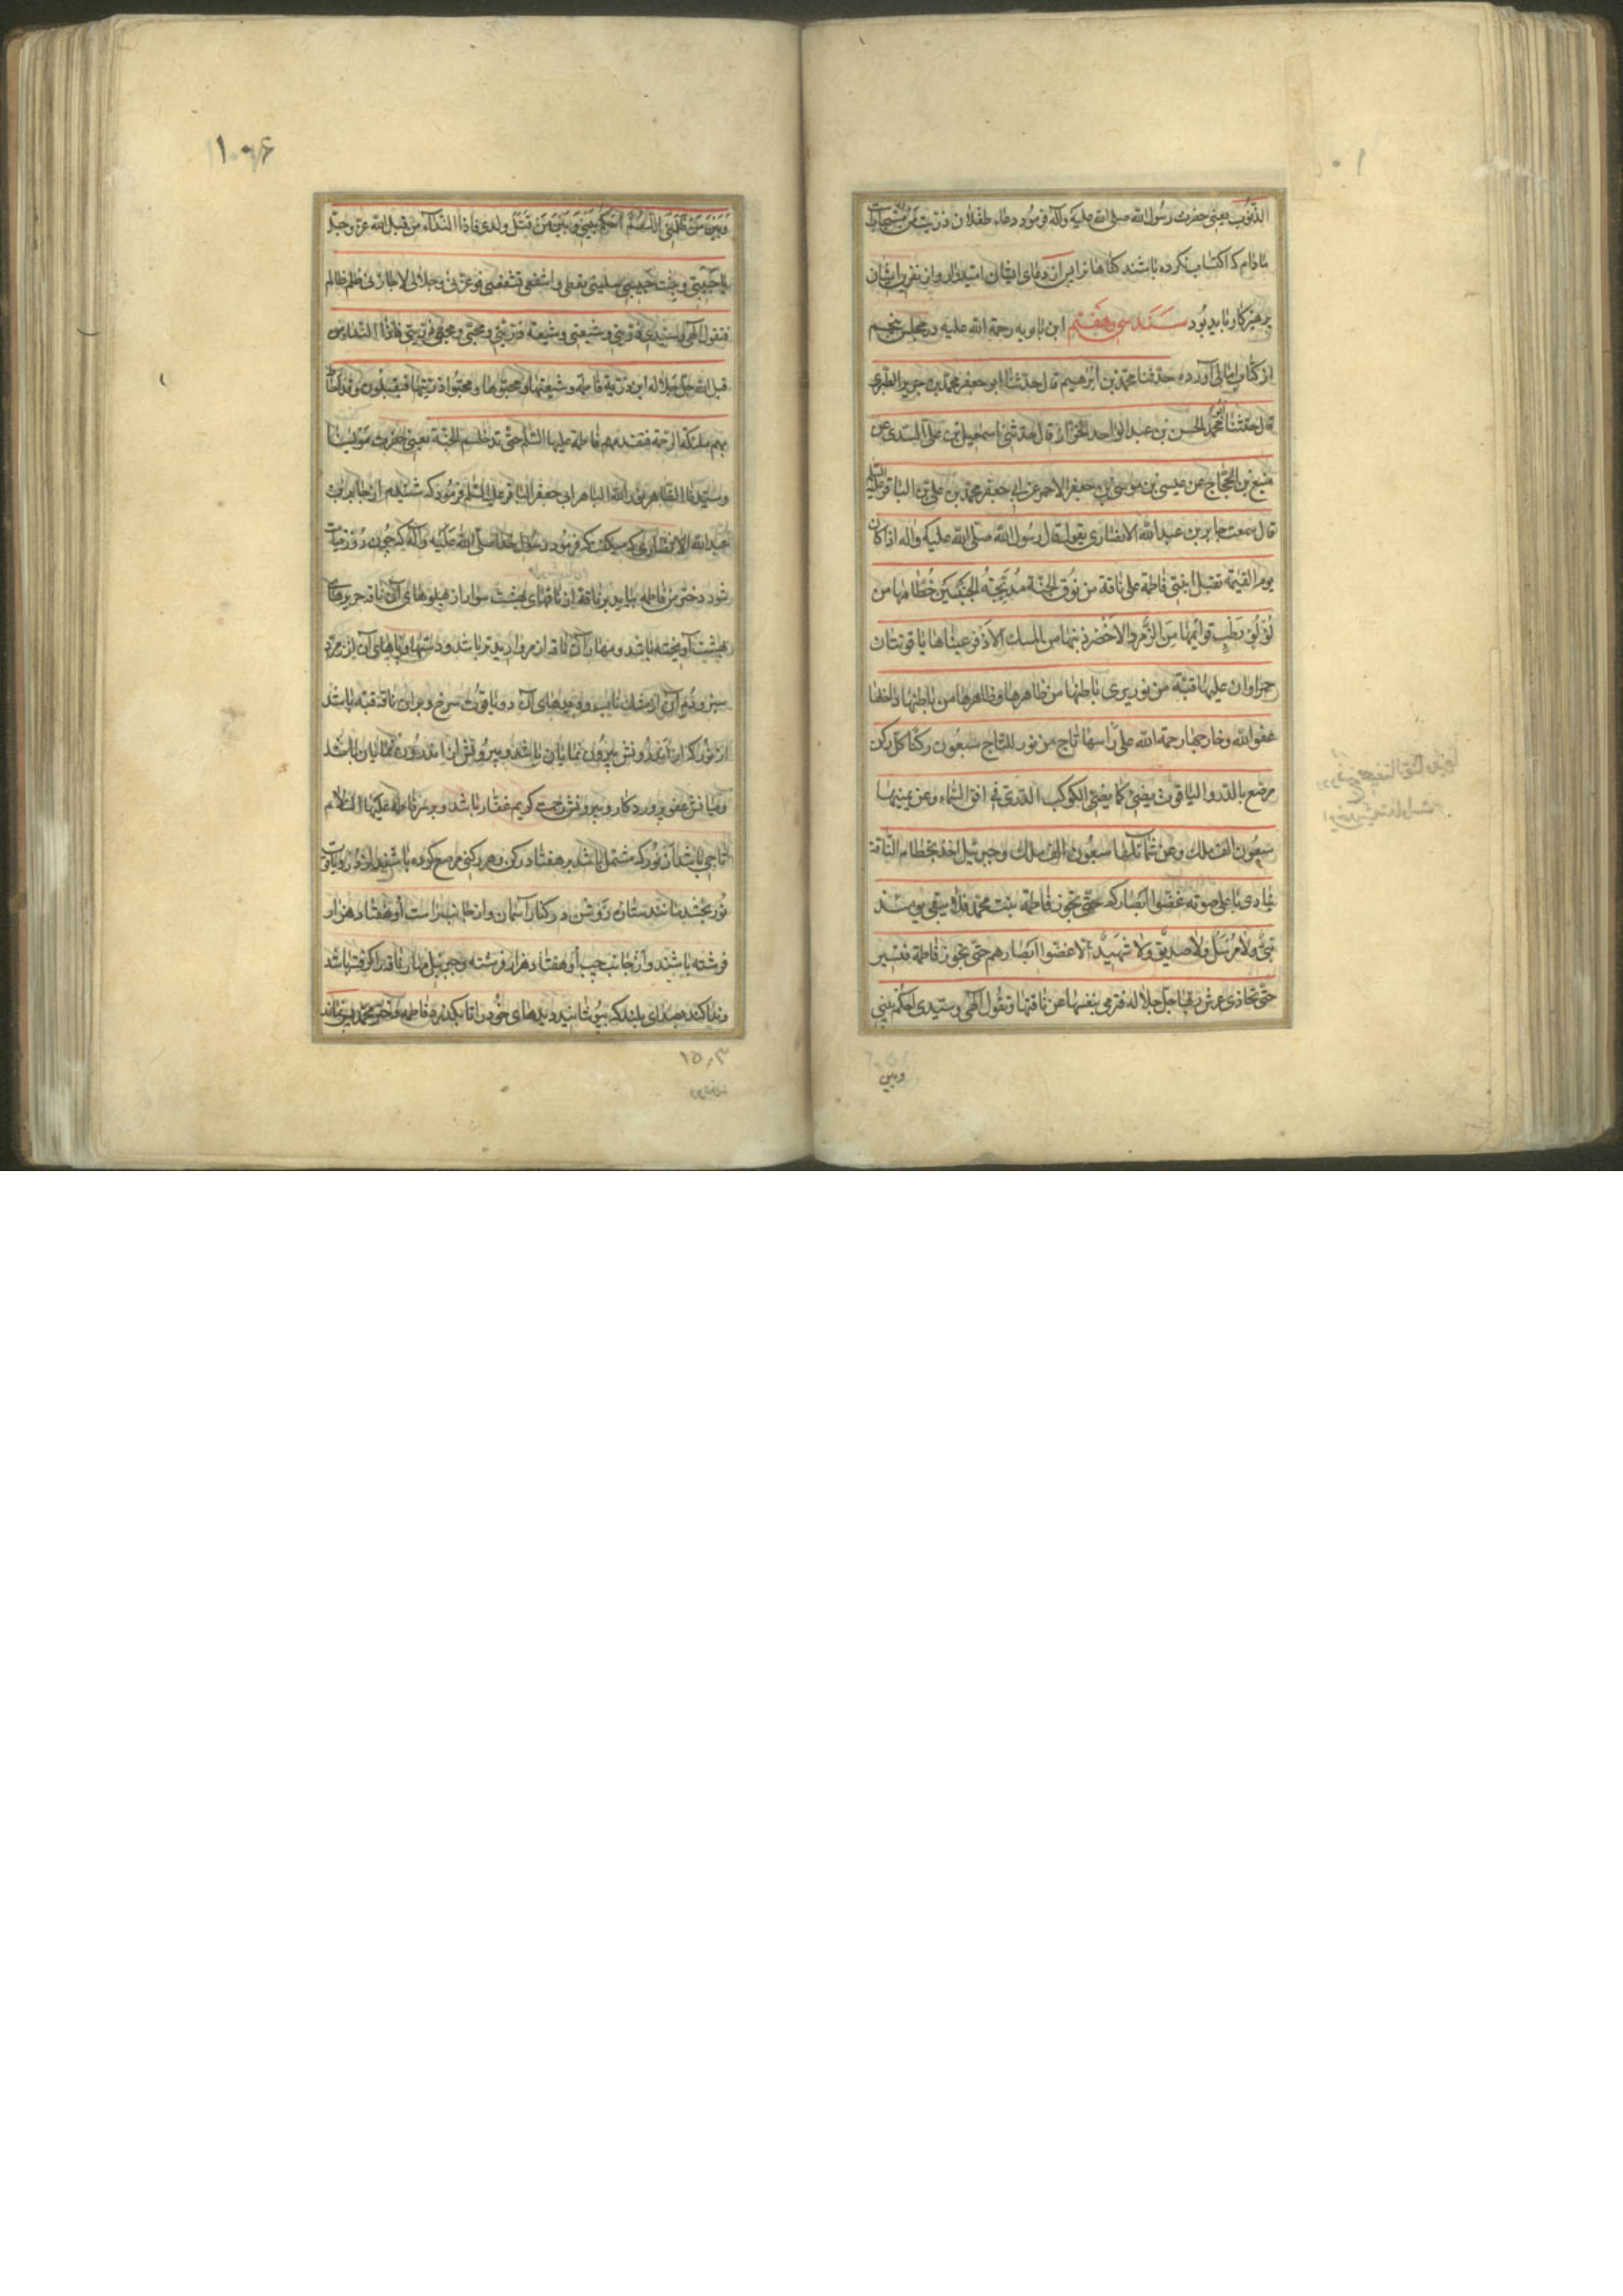 الذنوب یعنی حضرت رسول الله صلی الله علیه وآله فرمود دعاء طفلان ذریت من مستجابست
مادام که اکتساب نکرده باشند کناهانرا پس از دعای ایشان امیدوار و از نفرین ایشان
پرهیزکار باید بود سند سی وهفتم ابن بابویه رحمة الله علیه در مجلس پنجم
از کتاب امالی آورده حدثنا محمد بن ابرهیم قال حدثنا ابو جعفر محمد بن جریر الطبری
قال حدثنا ابو محمد الحسن بن عبد الواحد الخزاز قال حدثنی اسمعیل بن علی السندی عن
منیع بن الحجاج عن عیسی بن موسی بن جعفر الاحمر عن ابی جعفر محمد بن علی بن الباقر علیه السلم
قال سمعت جابر بن عبد الله الانصاری یقول قال رسول الله صلی الله علیه واله اذا کان
یوم القیمة تقبل ابنتی فاطمة علی ناقة من نوق الجنة مدبجة الجنبین خطامها من
لؤلؤ رطب قوائمها من الزمرد الاخضر ذنبها من المسک الاذفر عیناها یاقوتتان
حمراوان علیها قبة من نور یری باطنها من ظاهرها وظاهرها من باطنها داخلها
عفو الله وخارجها رحمة الله علی راسها تاج من نور للتاج سبعون رکنا کل رکن
مرصع بالدر والیاقوت یضیئ کما یضیئ الکوکب الدری فی افق السماء وعن یمینها
سبعون الف ملک وعن شمالها سبعون الف ملک وجبرئیل اخذ بخطام الناقة
ینادی باعلی صوته غضوا ابصارکم حتی تجوز فاطمة بنت محمد فلا یبقی یومئذ
نبی ولا مرسل ولا صدیق ولا شهید الا غضوا ابصارهم حتی تجوز فاطمة فتسیر
حتی تحاذی عرش ربها جل جلاله فترمی بنفسها عن ناقتها وتقول الهی وسیدی احکم بینی
وبین
۱۰۶
وبین من ظلمنی اللهم احکم بینی وبین من قتل ولدی فاذا النداء من قبل الله عز وجل
یا حبیبتی وبنت حبیبی سلینی تعطی واشفعی تشفعی فوعزتی وجلالی لا جازنی ظلم ظالم
فتقول الهی وسیدی ذریتی وشیعتی وشیعة ذریتی ومحبی ومحبی ذریتی فاذا النداء من
قبل الله جل جلاله این ذریة فاطمة وشیعتها ومحبوها ومحبوا ذریتها فیقبلون وقد احاط
بهم ملئکة الرحمة فتقدمهم فاطمة علیها السلم حتی تدخلهم الجنة یعنی حضرت مولینا
وسیدنا القاهر بامر الله الباهر ابی جعفر الباقر علیه السلم فرمود که شنیدم از جابر بن
عبد الله الانصاری که میکفت که فرمود رسول خدا صلی الله علیه وآله که چون روز قیامت
شود دختر من فاطمه بیاید بر ناقه از ناقهای بهشت سوار از پهلوهای آن ناقه حریرهای
بهشت آویخته باشد ومهار آن ناقه از مروارید تر باشد ودستها وپاهای آن از زمرد
سبز ودم آن از مشک ناب ودیدهای آن دو یاقوت سرخ وبر آن ناقه قبه باشد
از نور که از اندرونش بیرون نمایان باشد وبیرونش از اندرون نمایان باشد
ومیانش عفو پروردکار وبیرونش رحمت کریم غفار باشد وبر سر فاطمه علیها السلام
تاجی باشد از نور که مشتمل باشد بر هفتاد رکن وهر رکنی مرصع کرده باشند از در ویاقوت
نور بخشد مانند ستاره روشن در کنار آسمان واز جانب راست او هفتاد هزار
فرشته باشند واز جانب چپ او هفتاد هزار فرشته وجبرئیل مهار ناقه را کرفته باشد
وندا کند بصدای بلند که بپوشانید دیدهای خود را تا بکذرد فاطمه دختر محمد پس نماند
۱۵۰۳